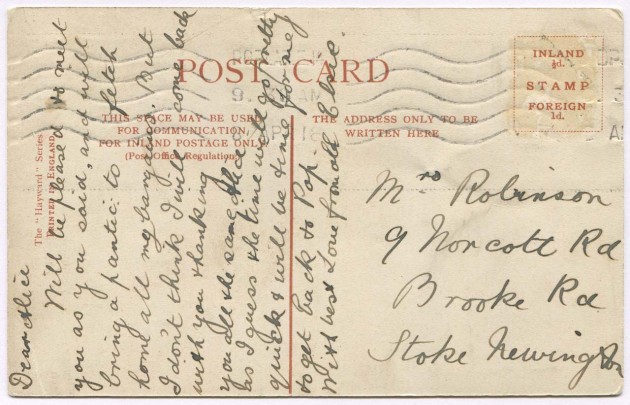 POST CARD
THIS SPACE MAY BE USED
FOR COMMUNICATION
FOR INLAND POSTAGE ONLY
(Post Office Regulation)
THE ADDRESS ONLY TO BE
WRITTEN HERE
INLAND
½d.
STAMP
FOREIGN
1d.
The "Hayward" Series
PRINTED IN ENGLAND
Dear Alice
Will be pleased to meet
you as you said, and will
bring a pantec: to fetch
home all my bargains. But
I don't think I will come back
with you thanking
you all the same Alice
as I guess the time will go pretty
quick & will be time for me
to get back to Pop.
With best Love from all Else.
Mrs Robinson
9 Norcott Rd
Brooke Rd
Stoke Newington